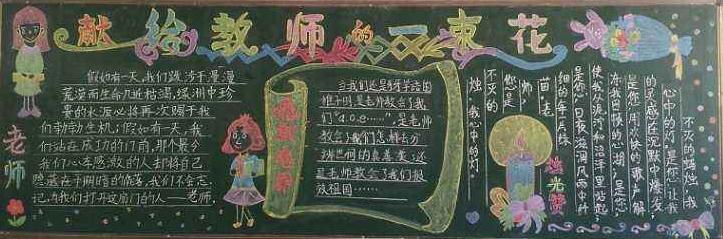 献给教师的一束花
老师
假如有一天,我们跋涉于漫漫
荒漠而生命几近枯竭,绿洲中珍
贵的水源必将再次赐于我
们勃勃生机;假如有一天,我
们站在成功的门前,那个最令
我们心存感激的人却将自己
隐藏在半明暗的角落,我们不会忘
记,为我们打开这扇门的人——老师。
当我们还是
雏子时,是老师教会了我
们"a.o.e……",是老师
教会了我们怎样去分
辨世间的真善美;还
是老师教会了我们报
效祖国……
烛光赞
不灭的蜡烛,我
心中的灯,是你,让我
的灵感在沉默中爆发,
是您,用欢快的歌声解
冻我恐惧的心湖,是您
是你,心日夜滋润风雨中
苗,老
师,
您是
不灭的
烛,我心中的灯。